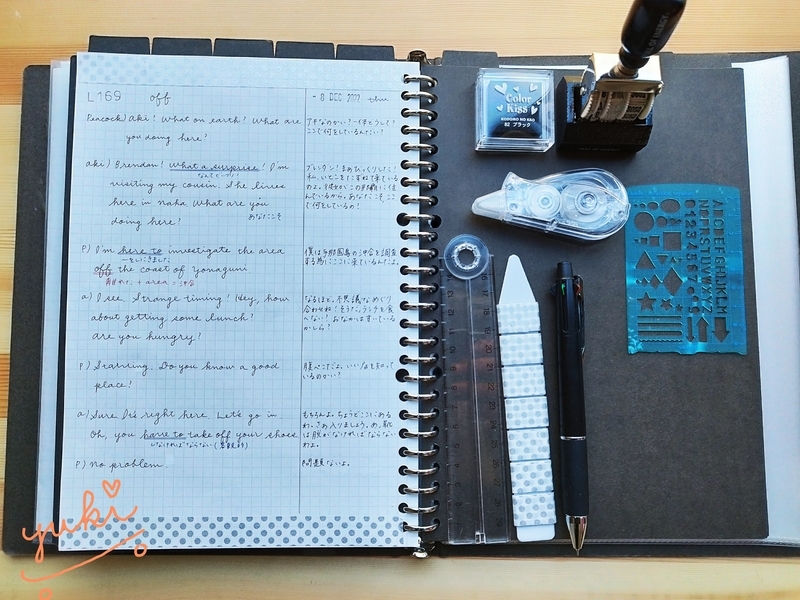 L169 off
- 8 DEC 2022 thu
Peacock) Aki! What on earth! What are
you doing here?
アキなのかい?一体どうして?
ここで何をしているんだい?
Aki) Brendan! What a surprise! I'm
なんてこった!
visiting my cousin. She lives
here in Naha. What are you
doing here?
あなたこそ
ブレンダン!まあびっくりした!
P) I'm here to investigate the area
〜しにきました
off the coast of Yonaguni
+ area = 沖合
僕は与那国島の沖合を調査
する為にここに来ているんだよ。
a) I see. Strange timing! Hey, how
about getting some lunch?
are you hungry?
なるほど。不思議なめぐり
合わせね!そうだ、ランチを食
べない?おなかはすいている
かしら?
P) Starving. Do you know a good
place!
腹ペこだよ。いいお店を知って
いるのかい?
a) Sure. It's right here. Let's go in.
Oh, you have to take off your shoes
しなければならない
もちろんよ。ちょうどここにある
わ。さあ入りましょう。あ、靴
は脱がなければならない
わよ。
P) No problem.
問題ないよ。
Color
Kiss
KODOMO NO KAO
82 ブラック
ABCDEFGHIJKLM
NOPQRSTUVWXYZ
0123456789
yuki